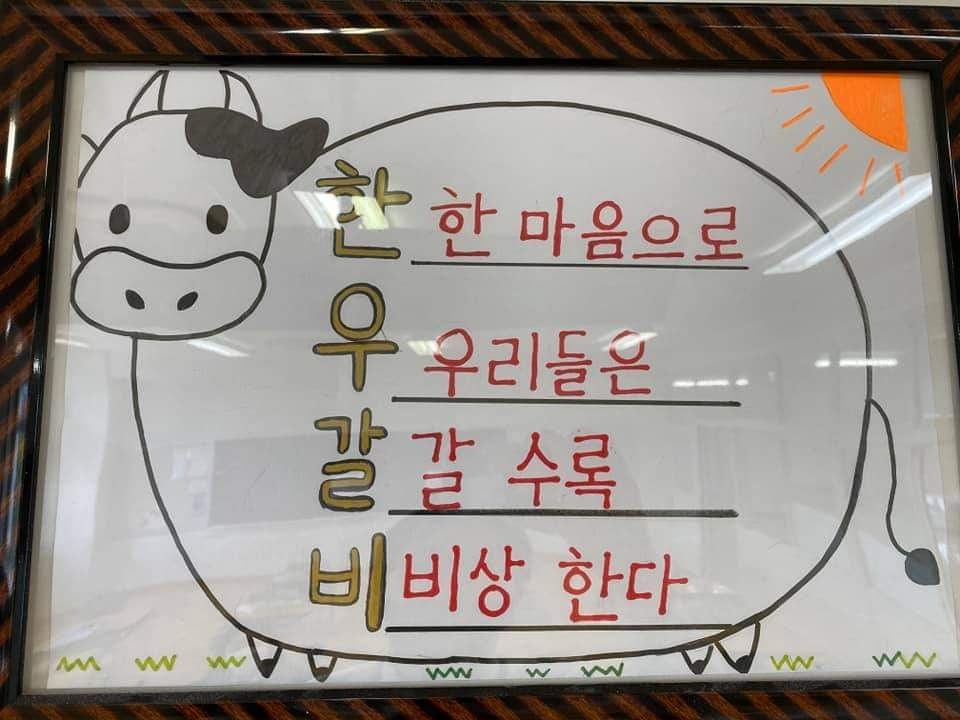 한 한 마음으로
우 우리들은
갈 갈 수록
비 비상 한다